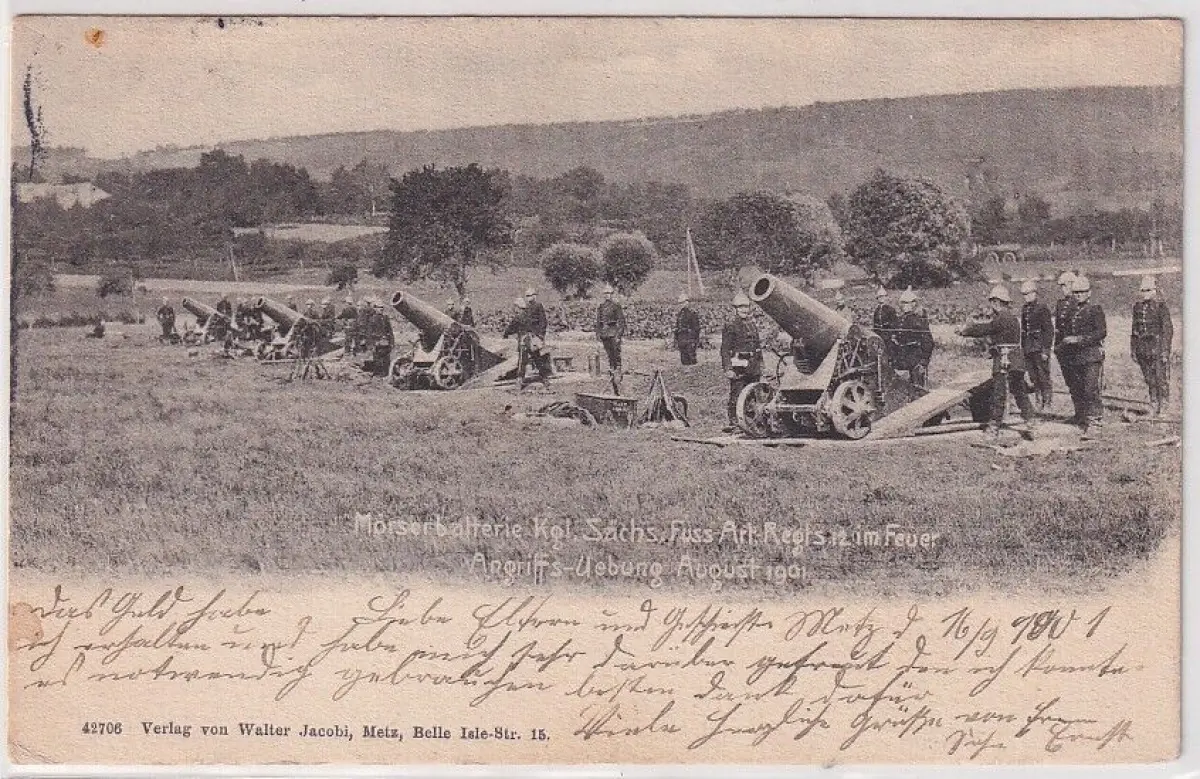 Mörserbatterie Kgl. Sächs. Fuss Art. Regts. 12 im Feuer
Angriffs-Uebung August 1901
Das Geld habe Liebe Eltern und Geschwister Metz d 16/9 1901
ich erhalten und habe mich sehr darüber gefreut den ich konnte
es notwendig gebrauchen besten Dank dafür
Viele herzliche Grüße von
Ernst
42706 Verlag von Walter Jacobi, Metz, Belle Isle-Str. 15.